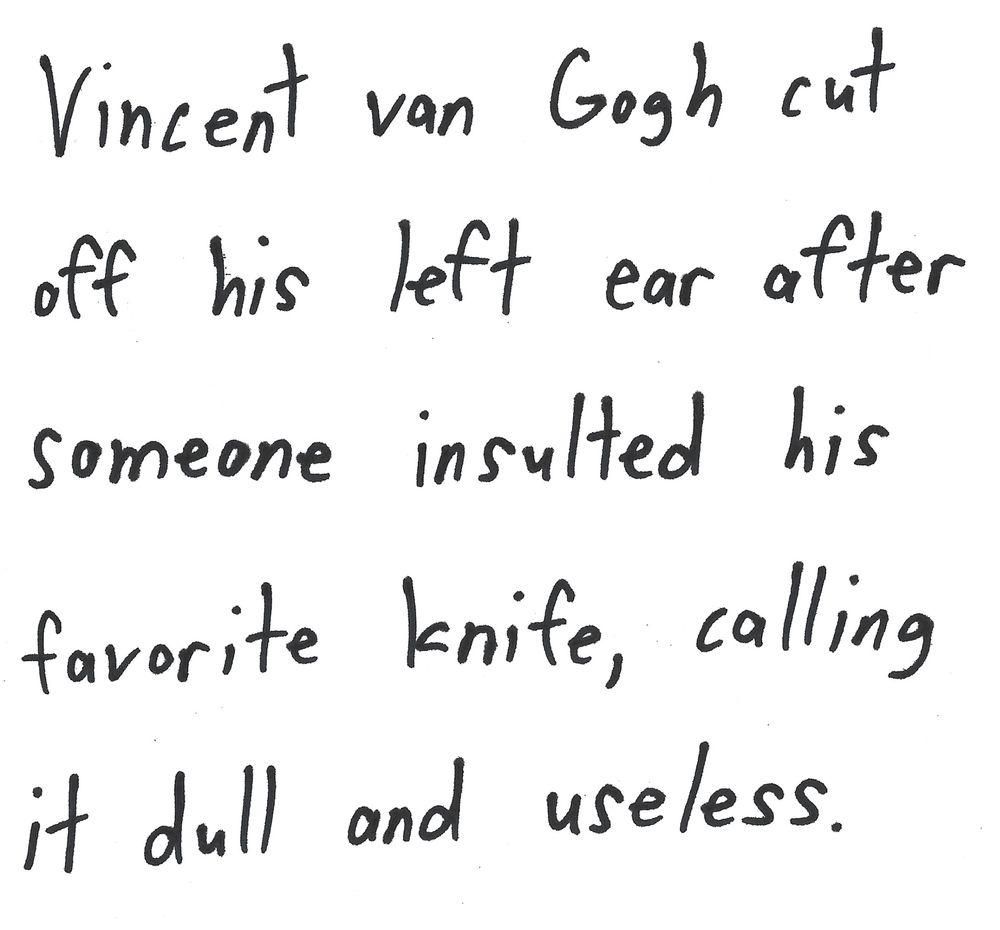 Vincent van Gogh cut
off his left ear after
someone insulted his
favorite knife, calling
it dull and useless.